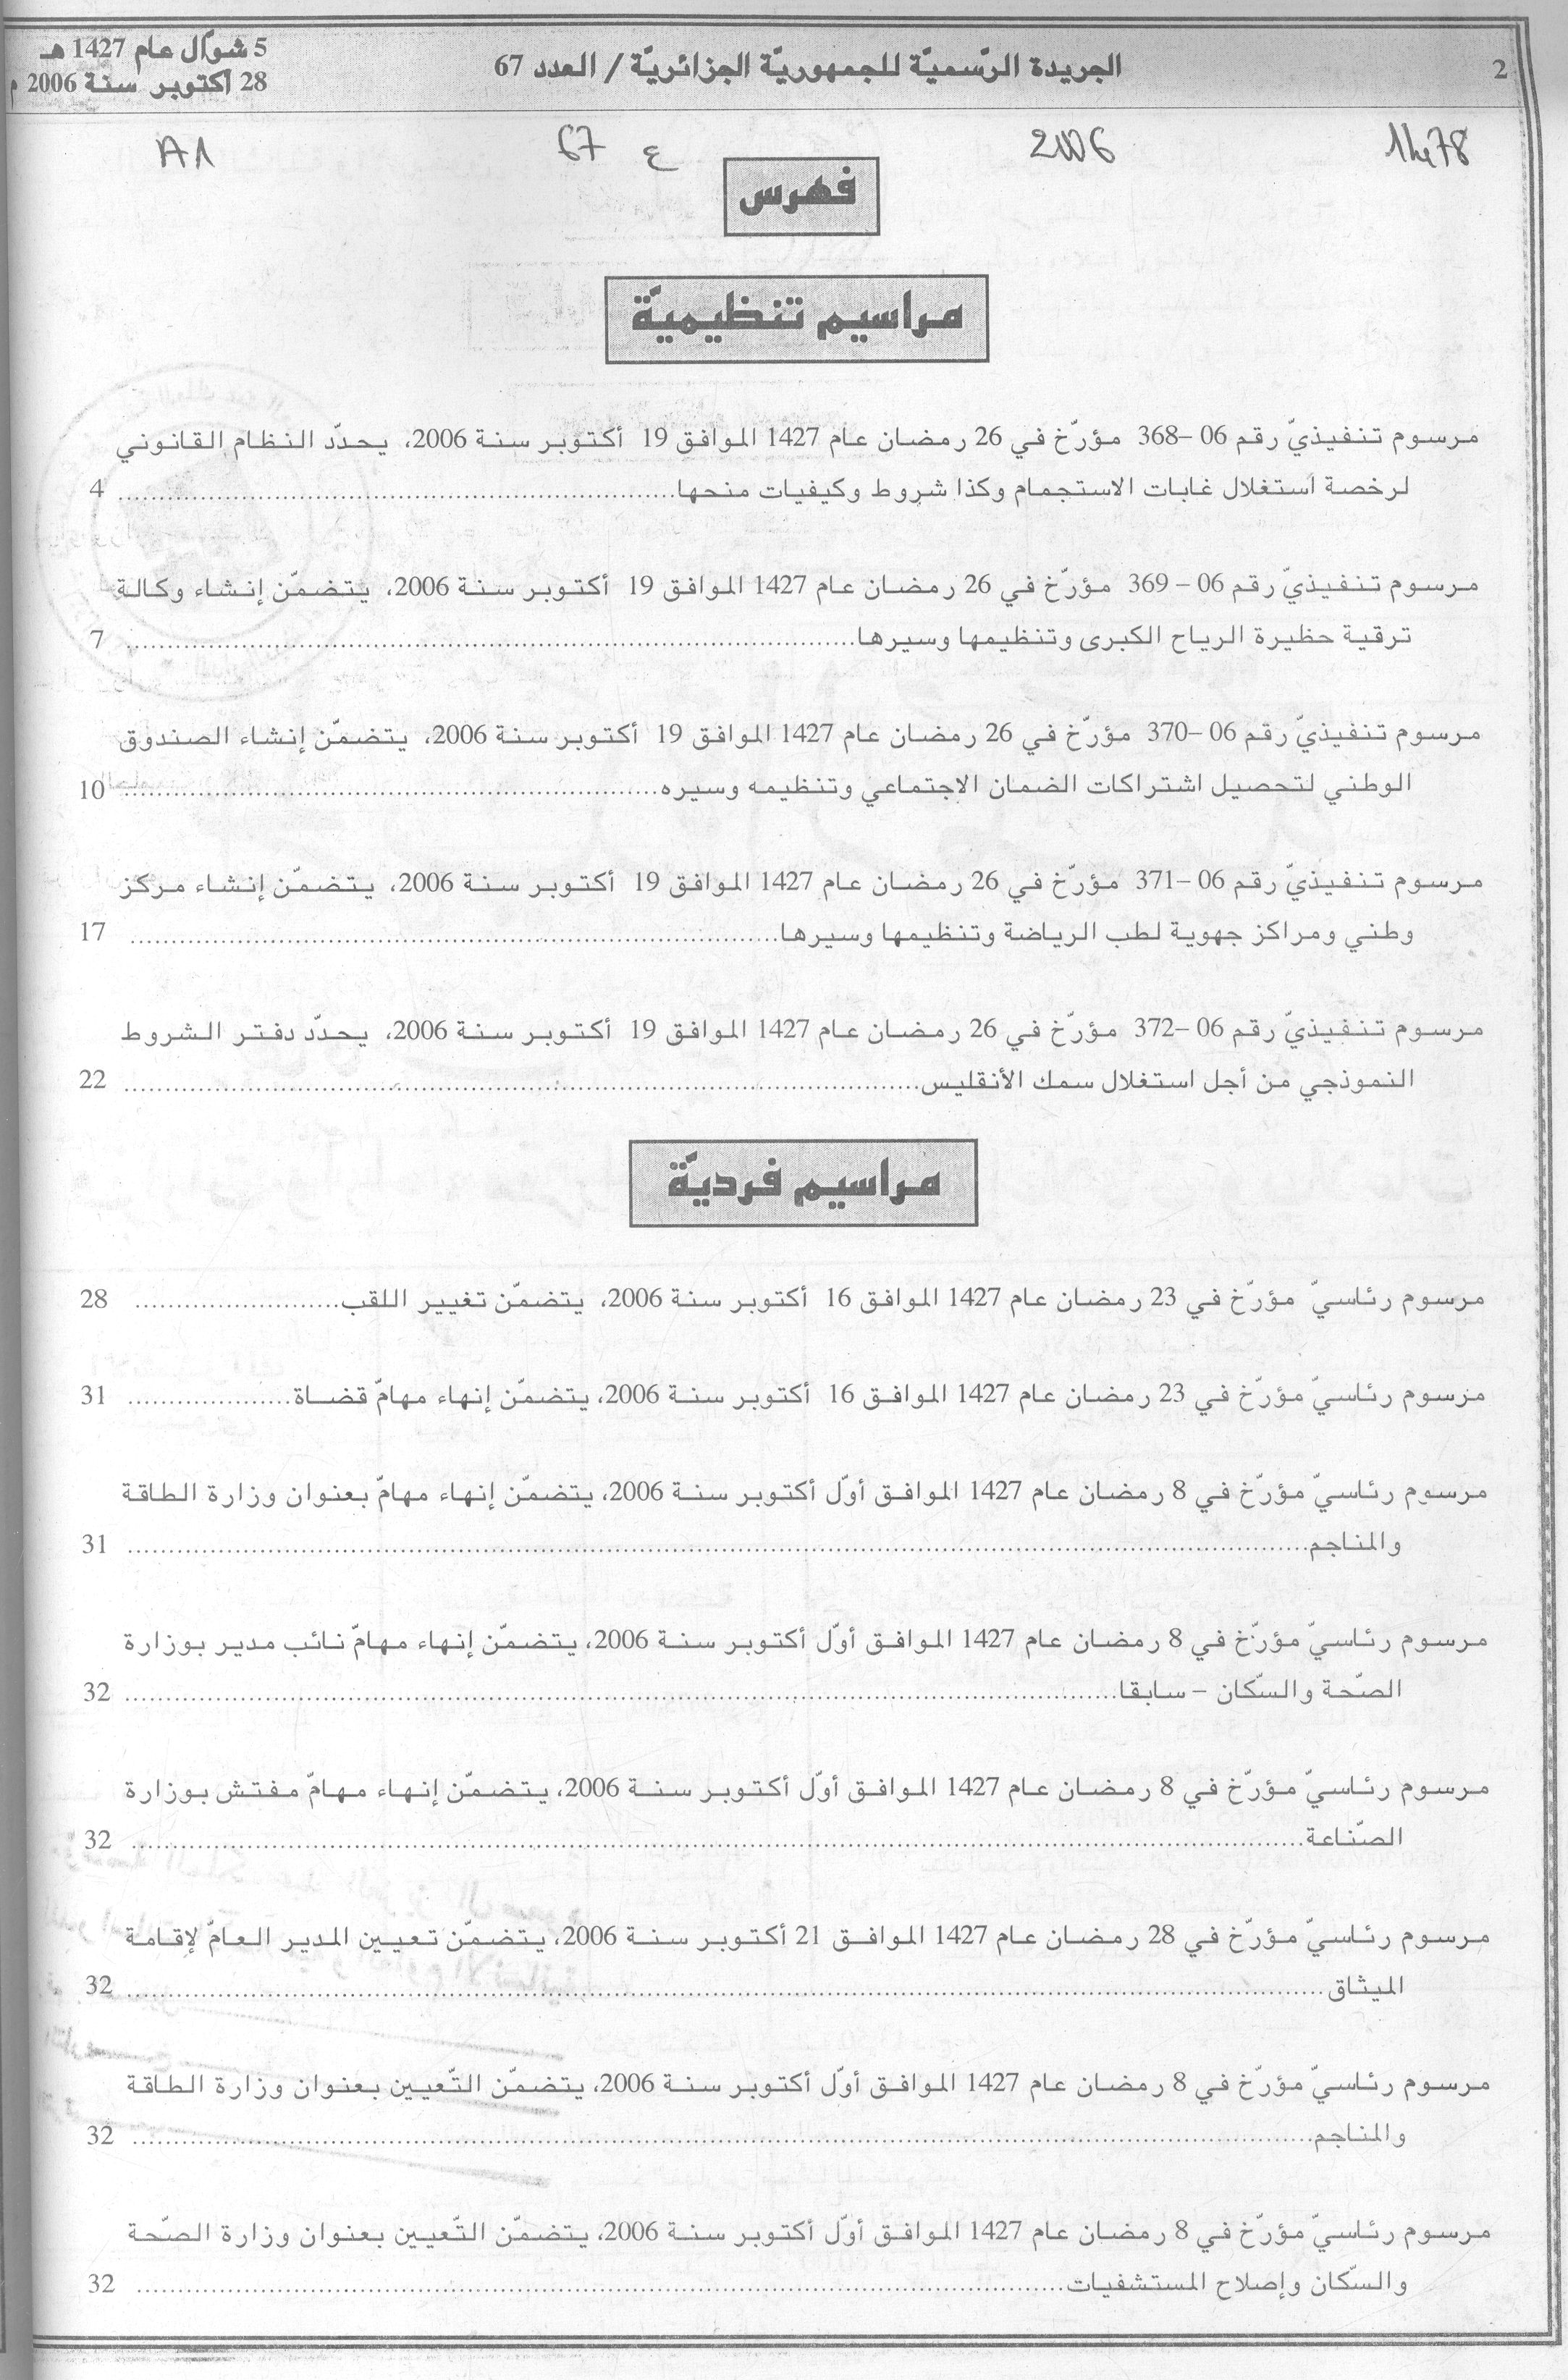 2
الجريدة الرّسميّة للجمهوريّة الجزائريّة / العدد 67
5 شوّال عام 1427 هـ
28 أكتوبر سنة 2006 م
1478 2006 ع 67 A1
فهرس
مراسيم تنظيميّة
مرسوم تنفيذيّ رقم 06 –368 مؤرّخ في 26 رمضان عام 1427 الموافق 19 أكتوبر سنة 2006، يحدّد النظام القانوني
لرخصة استغلال غابات الاستجمام وكذا شروط وكيفيات منحها........................................ 4
مرسوم تنفيذيّ رقم 06 – 369 مؤرّخ في 26 رمضان عام 1427 الموافق 19 أكتوبر سنة 2006، يتضمّن إنشاء وكالة
ترقية حظيرة الرياح الكبرى وتنظيمها وسيرها........................................ 7
مرسوم تنفيذيّ رقم 06 –370 مؤرّخ في 26 رمضان عام 1427 الموافق 19 أكتوبر سنة 2006، يتضمّن إنشاء الصندوق
الوطني لتحصيل اشتراكات الضمان الاجتماعي وتنظيمه وسيره........................................ 10
مرسوم تنفيذيّ رقم 06 –371 مؤرّخ في 26 رمضان عام 1427 الموافق 19 أكتوبر سنة 2006، يتضمّن إنشاء مركز
وطني ومراكز جهوية لطب الرياضة وتنظيمها وسيرها........................................ 17
مرسوم تنفيذيّ رقم 06 –372 مؤرّخ في 26 رمضان عام 1427 الموافق 19 أكتوبر سنة 2006، يحدّد دفتر الشروط
النموذجي من أجل استغلال سمك الأنقليس........................................ 22
مراسيم فرديّة
مرسوم رئاسيّ مؤرّخ في 23 رمضان عام 1427 الموافق 16 أكتوبر سنة 2006، يتضمّن تغيير اللقب.................... 28
مرسوم رئاسيّ مؤرّخ في 23 رمضان عام 1427 الموافق 16 أكتوبر سنة 2006، يتضمّن إنهاء مهامّ قضاة.................... 31
مرسوم رئاسيّ مؤرّخ في 8 رمضان عام 1427 الموافق أوّل أكتوبر سنة 2006، يتضمّن إنهاء مهامّ بعنوان وزارة الطاقة
والمناجم........................................ 31
مرسوم رئاسيّ مؤرّخ في 8 رمضان عام 1427 الموافق أوّل أكتوبر سنة 2006، يتضمّن إنهاء مهامّ نائب مدير بوزارة
الصّحة والسّكان – سابقا........................................ 32
مرسوم رئاسيّ مؤرّخ في 8 رمضان عام 1427 الموافق أوّل أكتوبر سنة 2006، يتضمّن إنهاء مهامّ مفتش بوزارة
الصّناعة........................................ 32
مرسوم رئاسيّ مؤرّخ في 28 رمضان عام 1427 الموافق 21 أكتوبر سنة 2006، يتضمّن تعيين المدير العامّ لإقامة
الميثاق........................................ 32
مرسوم رئاسيّ مؤرّخ في 8 رمضان عام 1427 الموافق أوّل أكتوبر سنة 2006، يتضمّن التّعيين بعنوان وزارة الطاقة
والمناجم........................................ 32
مرسوم رئاسيّ مؤرّخ في 8 رمضان عام 1427 الموافق أوّل أكتوبر سنة 2006، يتضمّن التّعيين بعنوان وزارة الصّحة
والسّكان وإصلاح المستشفيات........................................ 32